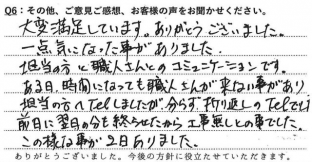 Q6：その他、ご意見ご感想、お客様の声をお聞かせください。
大変満足しています。ありがとうございました。
一点気になった事がありました。
担当の方と職人さんとのコミュニケーションです。
ある日、時間になっても職人さんが来ない事があり
担当の方へTelしましたが分らず、折り返しのTelでは
前日に翌日の分も終らせたから工事無しとの事でした。
この様な事が2日ありました。
ありがとうございました。今後の方針に役立たせていただきます。